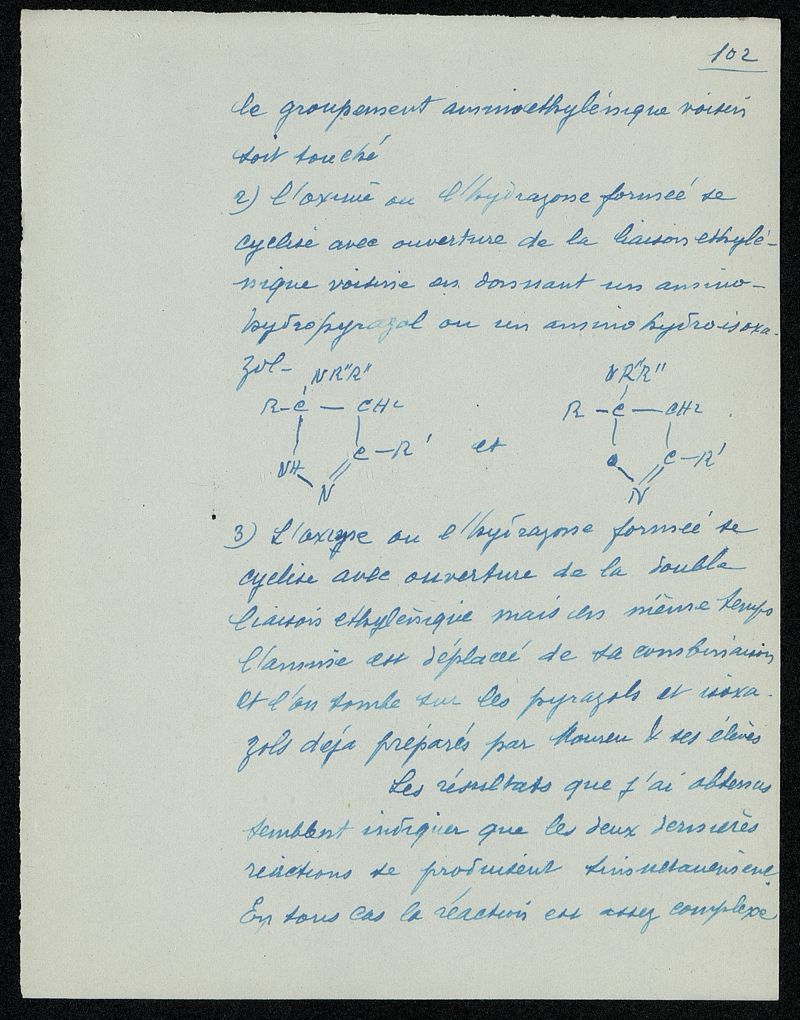 102
le groupement aminoethylénique voisin
soit touché
2) l'oxime ou l'hydrazone formée se
cyclise avec ouverture de la liaison ethylé-
nique voisine en donnant un amino-
hydropyrazol ou un amino hydroisoxa-
zol-
NR"R" NR"R"
R-C — CH2 R — C — CH2
NH C — R' et O C — R'
N N
3) L'oxime ou l'hydrazone formée se
cyclise avec ouverture de la double
liaison ethylénique mais en même temps
l'amine est déplacée de sa combinaison
et l'on tombe sur les pyrazols et isoxa-
zols déja préparés par Moureu & ses élèves
Les résultats que j'ai obtenus
semblent indiquer que les deux dernières
réactions se produisent simultanément
En tous cas la réaction est assez complexe